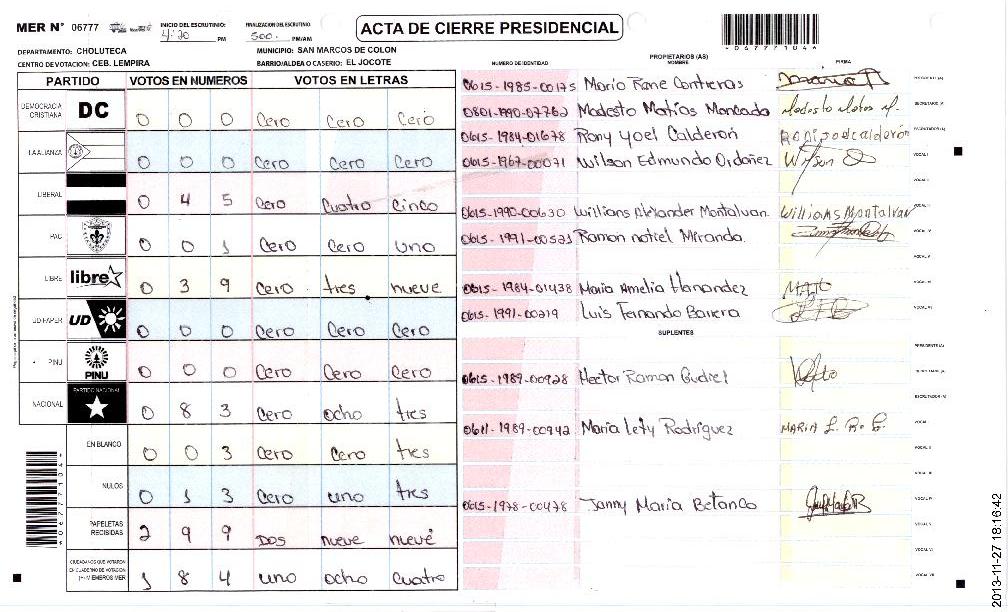 MER N° 06777 INICIO DEL ESCRUTINIO: 4:20 PM FINALIZACION DEL ESCRUTINIO: 500 PM/AM ACTA DE CIERRE PRESIDENCIAL
067771044
DEPARTAMENTO: CHOLUTECA MUNICIPIO: SAN MARCOS DE COLON
CENTRO DE VOTACION: CEB. LEMPIRA BARRIO/ALDEA O CASERIO: EL JOCOTE
NUMERO DE IDENTIDAD PROPIETARIOS (AS) NOMBRE FIRMA
PARTIDO VOTOS EN NUMEROS VOTOS EN LETRAS
DEMOCRACIA CRISTIANA DC 0 0 0 Cero Cero Cero
LA ALIANZA 0 0 0 Cero Cero Cero
LIBERAL 0 4 5 Cero Cuatro Cinco
PAC 0 0 1 Cero Cero uno
LIBRE libre 0 3 9 Cero tres nueve
UD FAPER UD 0 0 0 Cero Cero Cero
PINU PINU 0 0 0 Cero Cero Cero
NACIONAL PARTIDO NACIONAL 0 8 3 Cero ocho tres
EN BLANCO 0 0 3 Cero Cero tres
NULOS 0 1 3 Cero uno tres
PAPELETAS RECIBIDAS 2 9 9 DOS nueve nueve
CIUDADANOS QUE VOTARON EN CUADERNO DE VOTACION (+) MIEMBROS MER 1 8 4 uno ocho Cuatro
0615-1985-00175 Mario Rene Contreras PRESIDENTE (A)
0801-1990-07762 Modesto Matias Moncada Modesto Matias M. SECRETARIO (A)
0615-1984-01678 Rony Yoel Calderon ESCRUTADOR (A)
0615-1967-00071 Wilson Edmundo Ordoñez Wilson O VOCAL I
VOCAL II
0615-1990-00630 Willians Alexander Montalvan Willians Montalvan VOCAL III
0615-1991-00521 Ramon notiel Miranda. VOCAL IV
VOCAL V
0615-1984-01438 Maria Amelia Hernandez VOCAL VI
0615-1991-00219 Luis Fernando Barrera VOCAL VII
SUPLENTES
PRESIDENTE (A)
0615-1989-00928 Hector Ramon Gudiel SECRETARIO (A)
ESCRUTADOR (A)
0611-1989-00942 Maria Lety Rodriguez MARIA L. R. G. VOCAL I
VOCAL II
VOCAL III
0615-1978-00478 Janny Maria Betanco VOCAL IV
VOCAL V
VOCAL VI
VOCAL VII
067771044
2013-11-27 18:16:42